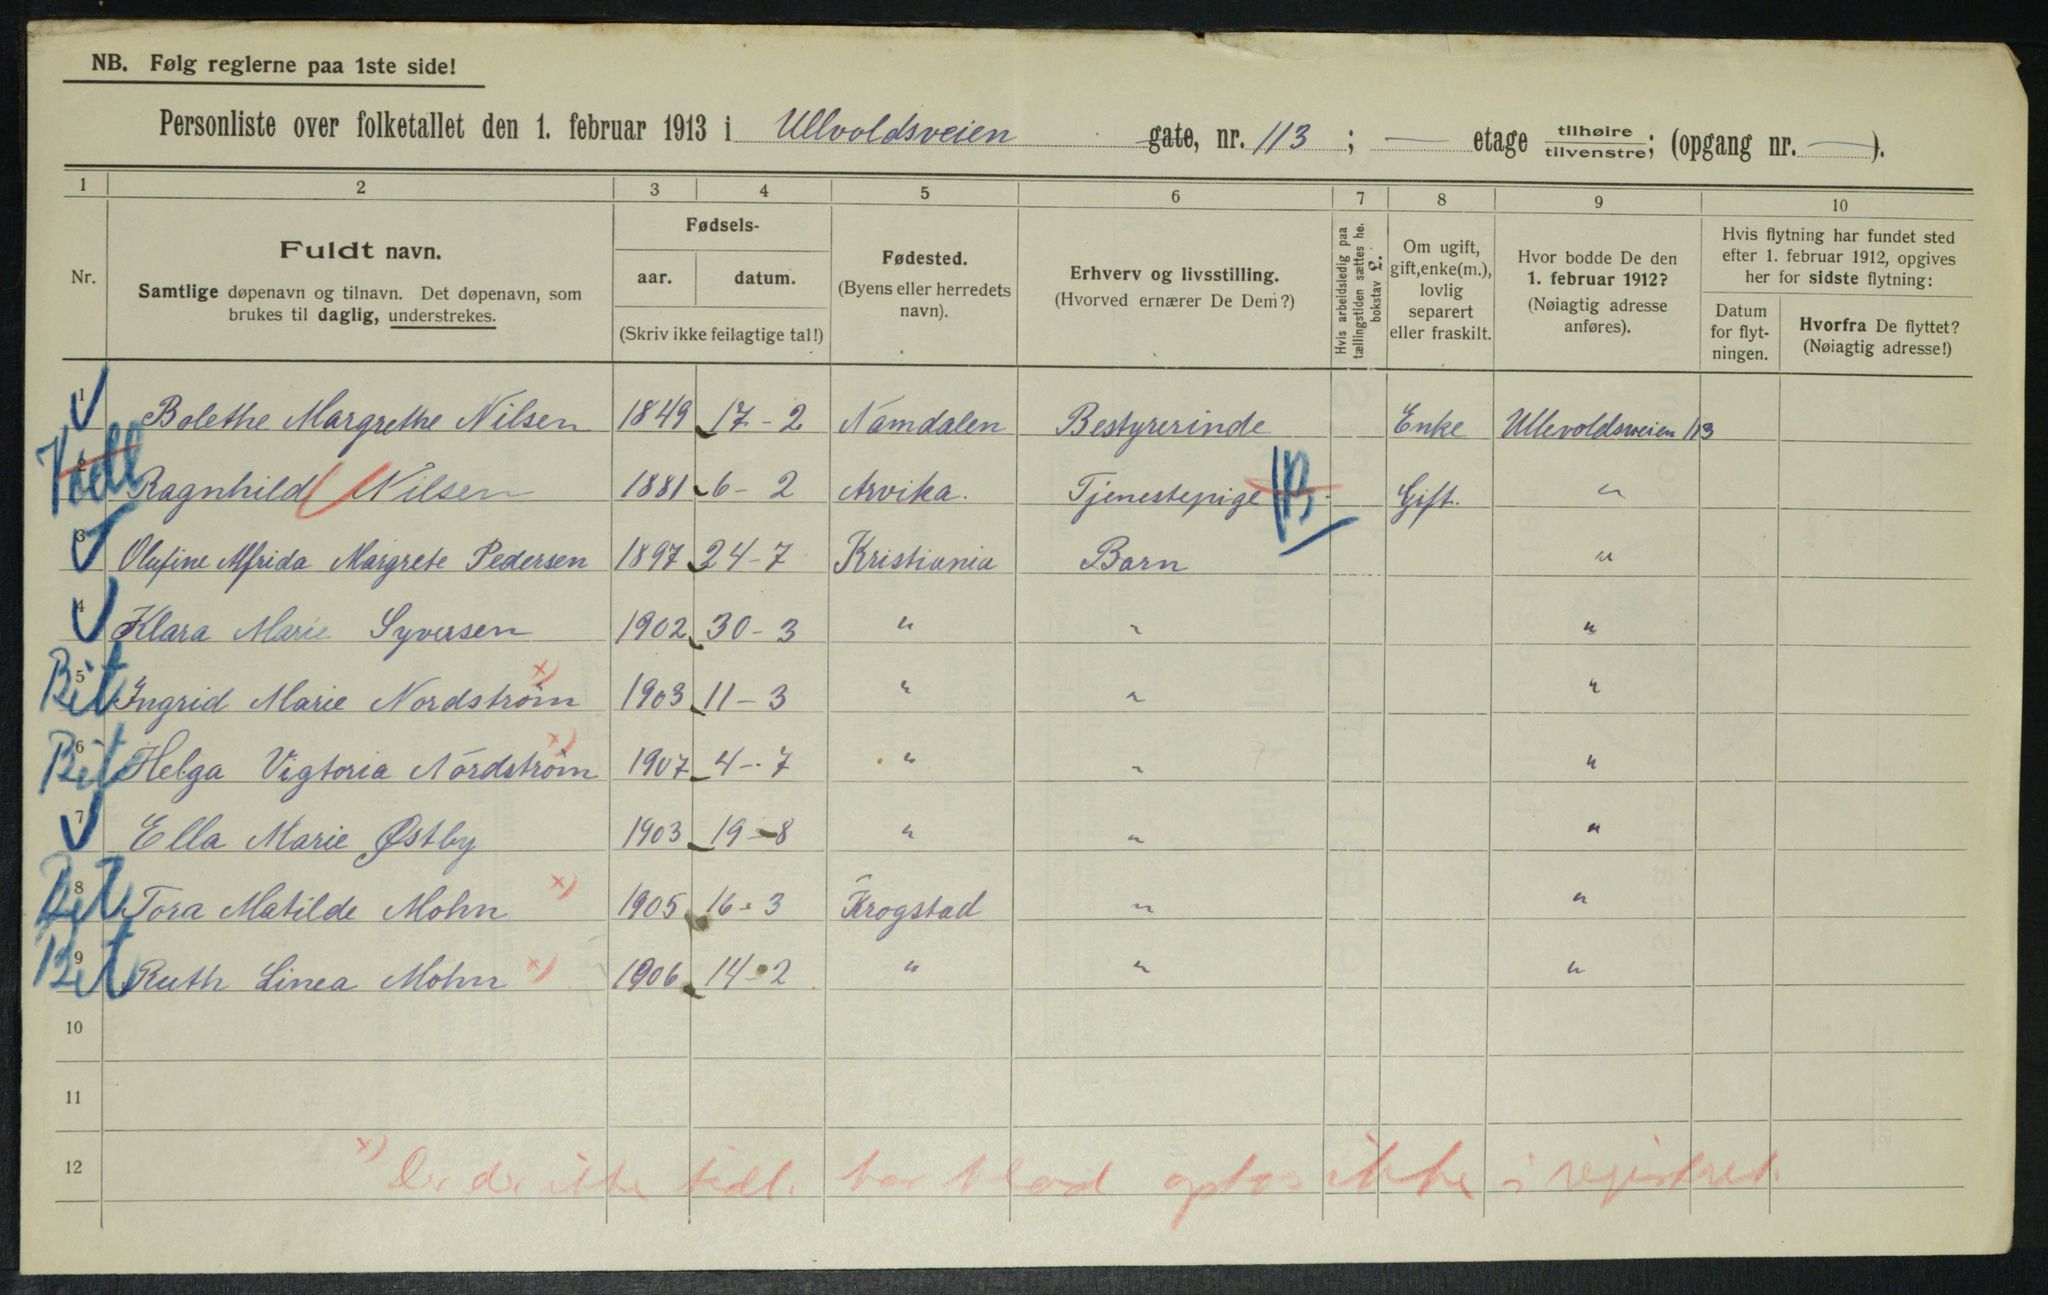 NB. Følg reglerne paa 1ste side!
Personliste over folketallet den 1. februar 1913 i Ullvoldsveien gate, nr. 113; — etage tilhøire tilvenstre; (opgang nr. —).
1 2 3 4 5 6 7 8 9 10
Nr.
Fuldt navn.
Samtlige døpenavn og tilnavn. Det døpenavn, som
brukes til daglig, understrekes.
Fødsels-
aar. datum.
(Skriv ikke feilagtige tal!)
Fødested.
(Byens eller herredets
navn).
Erhverv og livsstilling.
(Hvorved ernærer De Dem?)
Hvis arbeidsledig paa
tællingstiden sættes he.
bokstav l.
Om ugift,
gift, enke(m.),
lovlig
separert
eller fraskilt.
Hvor bodde De den
1. februar 1912?
(Nøiagtig adresse
anføres).
Hvis flytning har fundet sted
efter 1. februar 1912, opgives
her for sidste flytning:
Datum
for flyt-
ningen.
Hvorfra De flyttet?
(Nøiagtig adresse!)
1 Bolethe Margrethe Nilsen 1849 17-2 Namdalen Bestyrerinde Enke Ullevoldsveien 113
2 Ragnhild Nilsen 1881 6-2 Arvika. Tjenestepige Gift. "
3 Olufine Alfrida Margrete Pedersen 1897 24-7 Kristiania Barn "
4 Klara Marie Syversen 1902 30-3 " " "
Bit 5 Ingrid Marie Nordstrøm x) 1903 11-3 " " "
Bit 6 Helga Vigtoria Nordstrøm x) 1907 4-7 " " "
7 Ella Marie Østby 1903 19-8 " " "
Bit 8 Tora Matilde Mohn x) 1905 16-3 Krogstad " "
Bit 9 Ruth Linea Mohn x) 1906 14-2 " " "
10
11
12 x) De der ikke tidl. har blad optas ikke i registret.